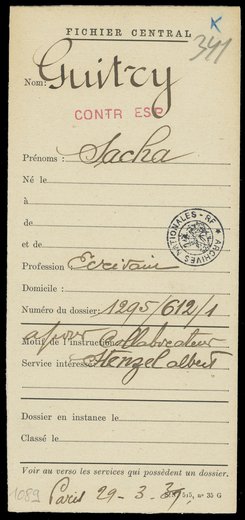 FICHIER CENTRAL
K
341
Nom: Guitry
CONTR ESP
Prénoms : Sacha
Né le
à
de
et de
ARCHIVES NATIONALES - RF
Profession Ecrivain
Domicile :
Numéro du dossier: 1295/612/1
a pour collaborateur
Motif de l'instruction
Service intéressé: Henzel albert
Dossier en instance le
Classé le
Voir au verso les services qui possèdent un dossier.
1089 Paris 29-3-35, n° 35 G